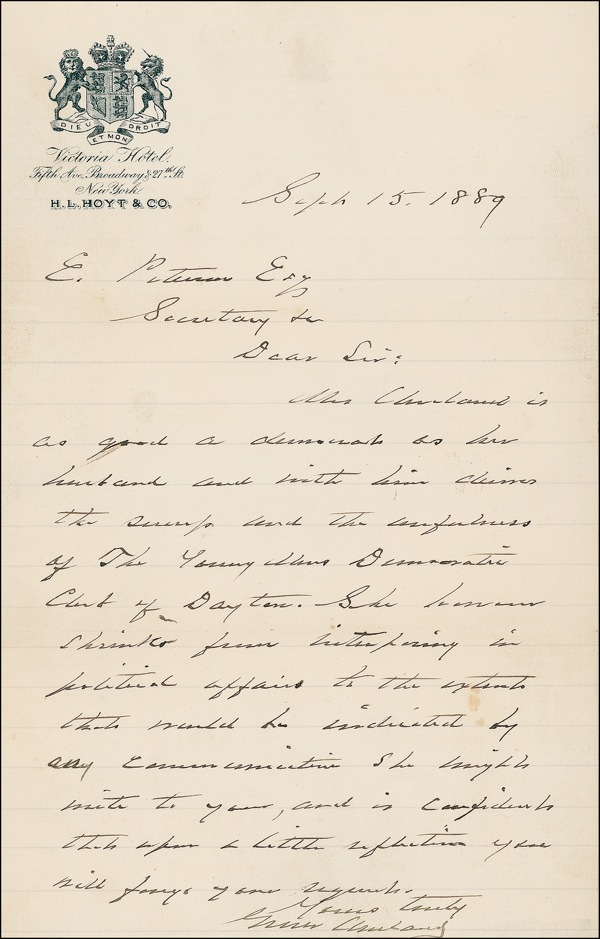 DIEU ET MON DROIT
Victoria Hotel.
Fifth Ave, Broadway & 27th St.
New York.
H. L. HOYT & CO.
Sept 15. 1889
E.             Esq
Secretary &c
Dear Sir:
Mrs Cleveland is
as good a democrat as her
husband and with him desires
the success and the usefulness
of The Young Mens Democratic
Club of Dayton. She however
shrinks from interposing in
political affairs to the extent
that would be indicated by
any communication she might
write to you, and is confident
that upon a little reflection you
will forego your request.
Yours truly
Grover Cleveland